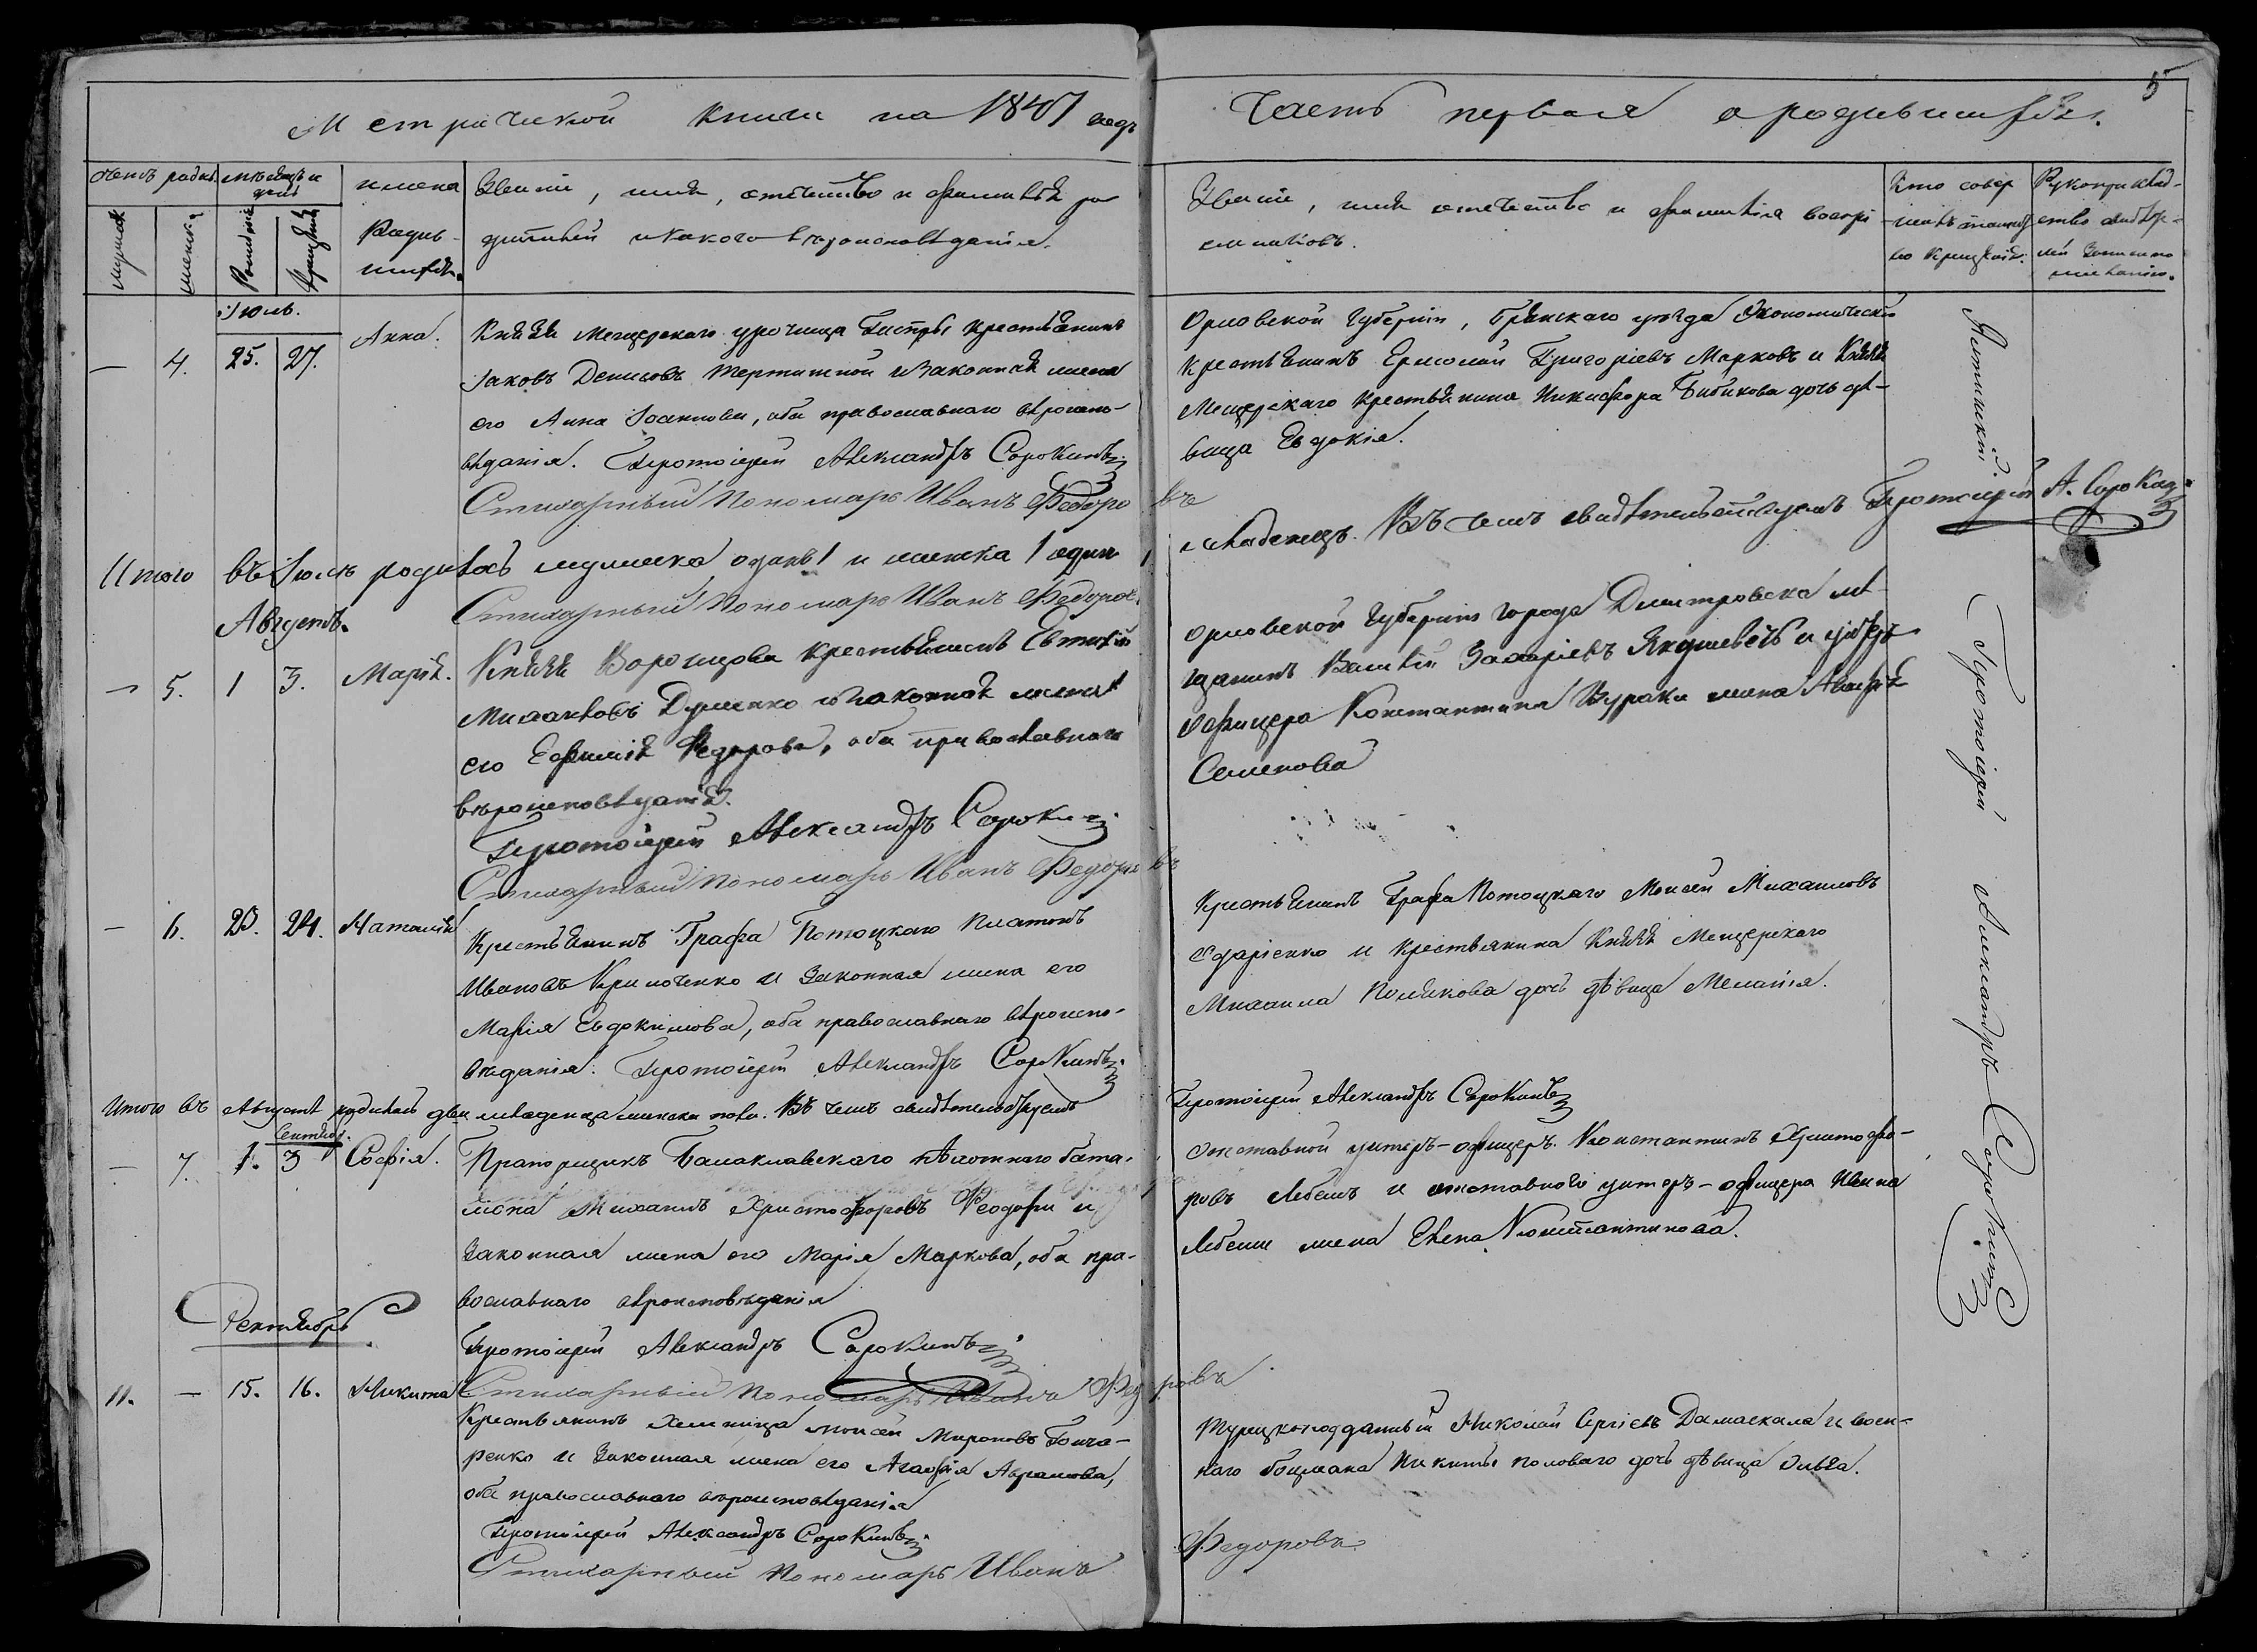 5
Метрической книги на 1847 годъ
Часть первая о родившихся.
Счетъ родив.
мѣсяцъ и день
мужеск
женска
Рожденія
Крещенія
имена
Родив-
шихся.
Званіе, имя, отчество и фамилія ро-
дителей и какого вѣроисповѣданія.
Званіе, имя отечество и фамилія воспрі-
емниковъ.
Кто совер
-шалъ таинст
во Крещенія.
Рукоприклад-
ство свидѣте-
лей записи по
желанію.
Іюль.
— 4. 25. 27. Анна.
Князя Мещерскаго урочища крестьянинъ
Іаковъ Денисовъ и законная жена
его Анна Іоаннова, оба православнаго вѣроиспо-
вѣданія. Протоіерей Александръ Сорокинъ
Стихарный Пономарь Иванъ Федоровъ
Орловской Губерніи, Брянскаго уѣзда Экономическій
крестьянинъ Ермолай Григоріевъ Марковъ и Князя
Мещерскаго крестьянина Никифора Бибикова дочь дѣ-
вица Евдокія.
Итого въ Іюлѣ родилось мужеска одинъ 1 и женска 1 одинъ
младенецъ. Въ чемъ свидѣтельствуемъ Протоіерей А. Сорокинъ
Стихарный Пономарь Иванъ Федоровъ
Августъ.
— 5. 1 3. Марія.
Князя Воронцова крестьянинъ Евтихій
Думенко и законная жена
его Ефимія Федорова, оба православнаго
вѣроисповѣданія.
Протоіерей Александръ Сорокинъ
Стихарный Пономарь Иванъ Федоровъ
Орловской Губерніи города Дмитровска мѣ-
щанинъ Василій Захаріевъ и унтеръ
офицера Константина жена
Семенова
— 6. 20. 24. Наталія
Крестьянинъ Графа Потоцкаго Платонъ
Ивановъ и законная жена его
Марія Евдокимова, оба православнаго вѣроиспо-
вѣданія. Протоіерей Александръ Сорокинъ
Крестьянинъ Графа Потоцкаго Моисей Михаиловъ
и крестьянина Князя Мещерскаго
Михаила Полякова дочь дѣвица Меланія.
Итого въ Августѣ родилось два младенца женска пола. Въ чемъ свидѣтельствуемъ
Протоіерей Александръ Сорокинъ
Сентябр.
— 7. 1. 3 Софія.
Прапорщикъ Балаклавскаго пѣхотнаго бата-
ліона Михаилъ Христофоровъ Феодори и
законная жена его Марія Маркова, оба пра-
вославнаго вѣроисповѣданія
Протоіерей Александръ Сорокинъ
Стихарный Пономарь Иванъ Федоровъ
Отставной унтеръ-офицеръ Константинъ Христофо-
ровъ и отставного унтеръ-офицера Ивана
жена Елена Константинова.
Сентябрь
11. — 15. 16. Никита
Крестьянинъ Моисей Мироновъ Гонча-
ренко и законная жена его Агафія Аврамова,
оба православнаго вѣроисповѣданія
Протоіерей Александръ Сорокинъ
Стихарный Пономарь Иванъ
Федоровъ
Турецкоподданный Николай Сергіевъ Дамаскала и воен-
наго боцмана Никиты Полового дочь дѣвица Ольга.
Протоіерей Александръ Сорокинъ